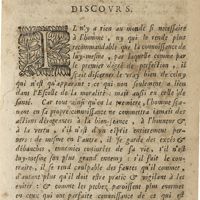 DISCOVRS.
IL n'y a rien au monde si necessaire
à l'homme, ny qui le rende plus
recommandable que la connoissance de
luy-mesme, par laquelle comme par
le premier degré de perfection, il
sçait discerner le vray bien de celuy
qui n'est qu'apparent: ce qui non seulement a lieu
dans l'Eschole de la moralité: mais aussi en celle de
santé. Car tout ainsi qu'en la premiere, l'homme
en sa propre connoissance ne commettra jamais des
actions à la bien-seance, à l'honneur &
à la vertu, s'il n'est d'un esprit entierement
de mesme en l'autre, il se garde des excés des
débauches, ennemies conjurées de sa vie, s'il n'est
luy-mesme son plus grand ennemy: s'il fait le
il se rend coulpable des fautes qu'il commet,
d'autant plus qu'il doit estre pratic & à les
& comme les pechez paroissent plus énormes
en ceux qui ont plus de connoissance de